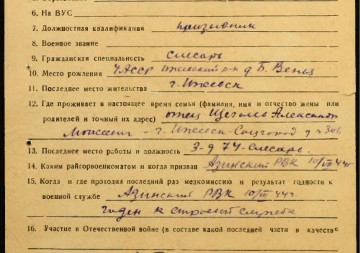 6. На ВУС
7. Должностная квалификация призывник
8. Военное звание
9. Гражданская специальность слесарь
10. Место рождения УАССР Ижевский р-н д. Б. Венья
11. Последнее место жительства г. Ижевск
12. Где проживает в настоящее время семья (фамилия, имя и отчество жены или
родителей и точный их адрес) отец Александр
г. Ижевск Соцгород
13. Последнее место работы и должность З-д 74 - слесарь.
14. Каким райгорвоенкоматом и когда призван Азинский РВК 10/III 44 г
15. Когда и где проходил последний раз медкомиссию и результат годности к
военной службе Азинский РВК 10/III 44 г.
годен к строевой службе
16. Участие в Отечественной войне (в составе какой последней части и в качестве